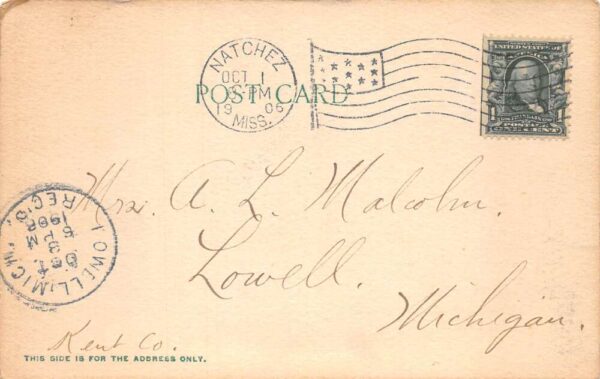 NATCHEZ
OCT 1
PM
19 06
MISS.
POST CARD
UNITED STATES OF
1
POSTAGE
CENT
Mrs. A. L. Malcolm.
Lowell.
Michigan.
Kent Co.
THIS SIDE IS FOR THE ADDRESS ONLY.
LOWELL, MICH.
OCT.
3
PM
1906
REC'D.